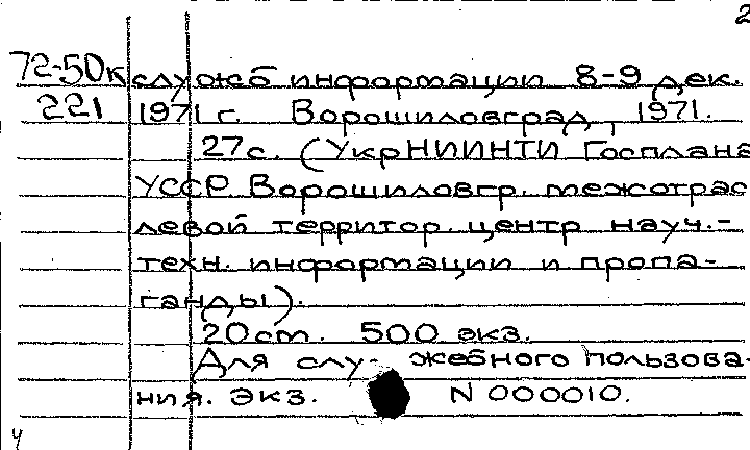 2
72-50к служб информации 8-9 дек.
221 1971 г. Ворошиловград, 1971.
27с. (УкрНИИНТИ Госплана
УССР. Ворошиловгр. межотрас
левой территор. центр науч.-
техн. информации и пропа-
ганды).
20см. 500 экз.
Для слу- жебного пользова-
ния. Экз. N 000010.